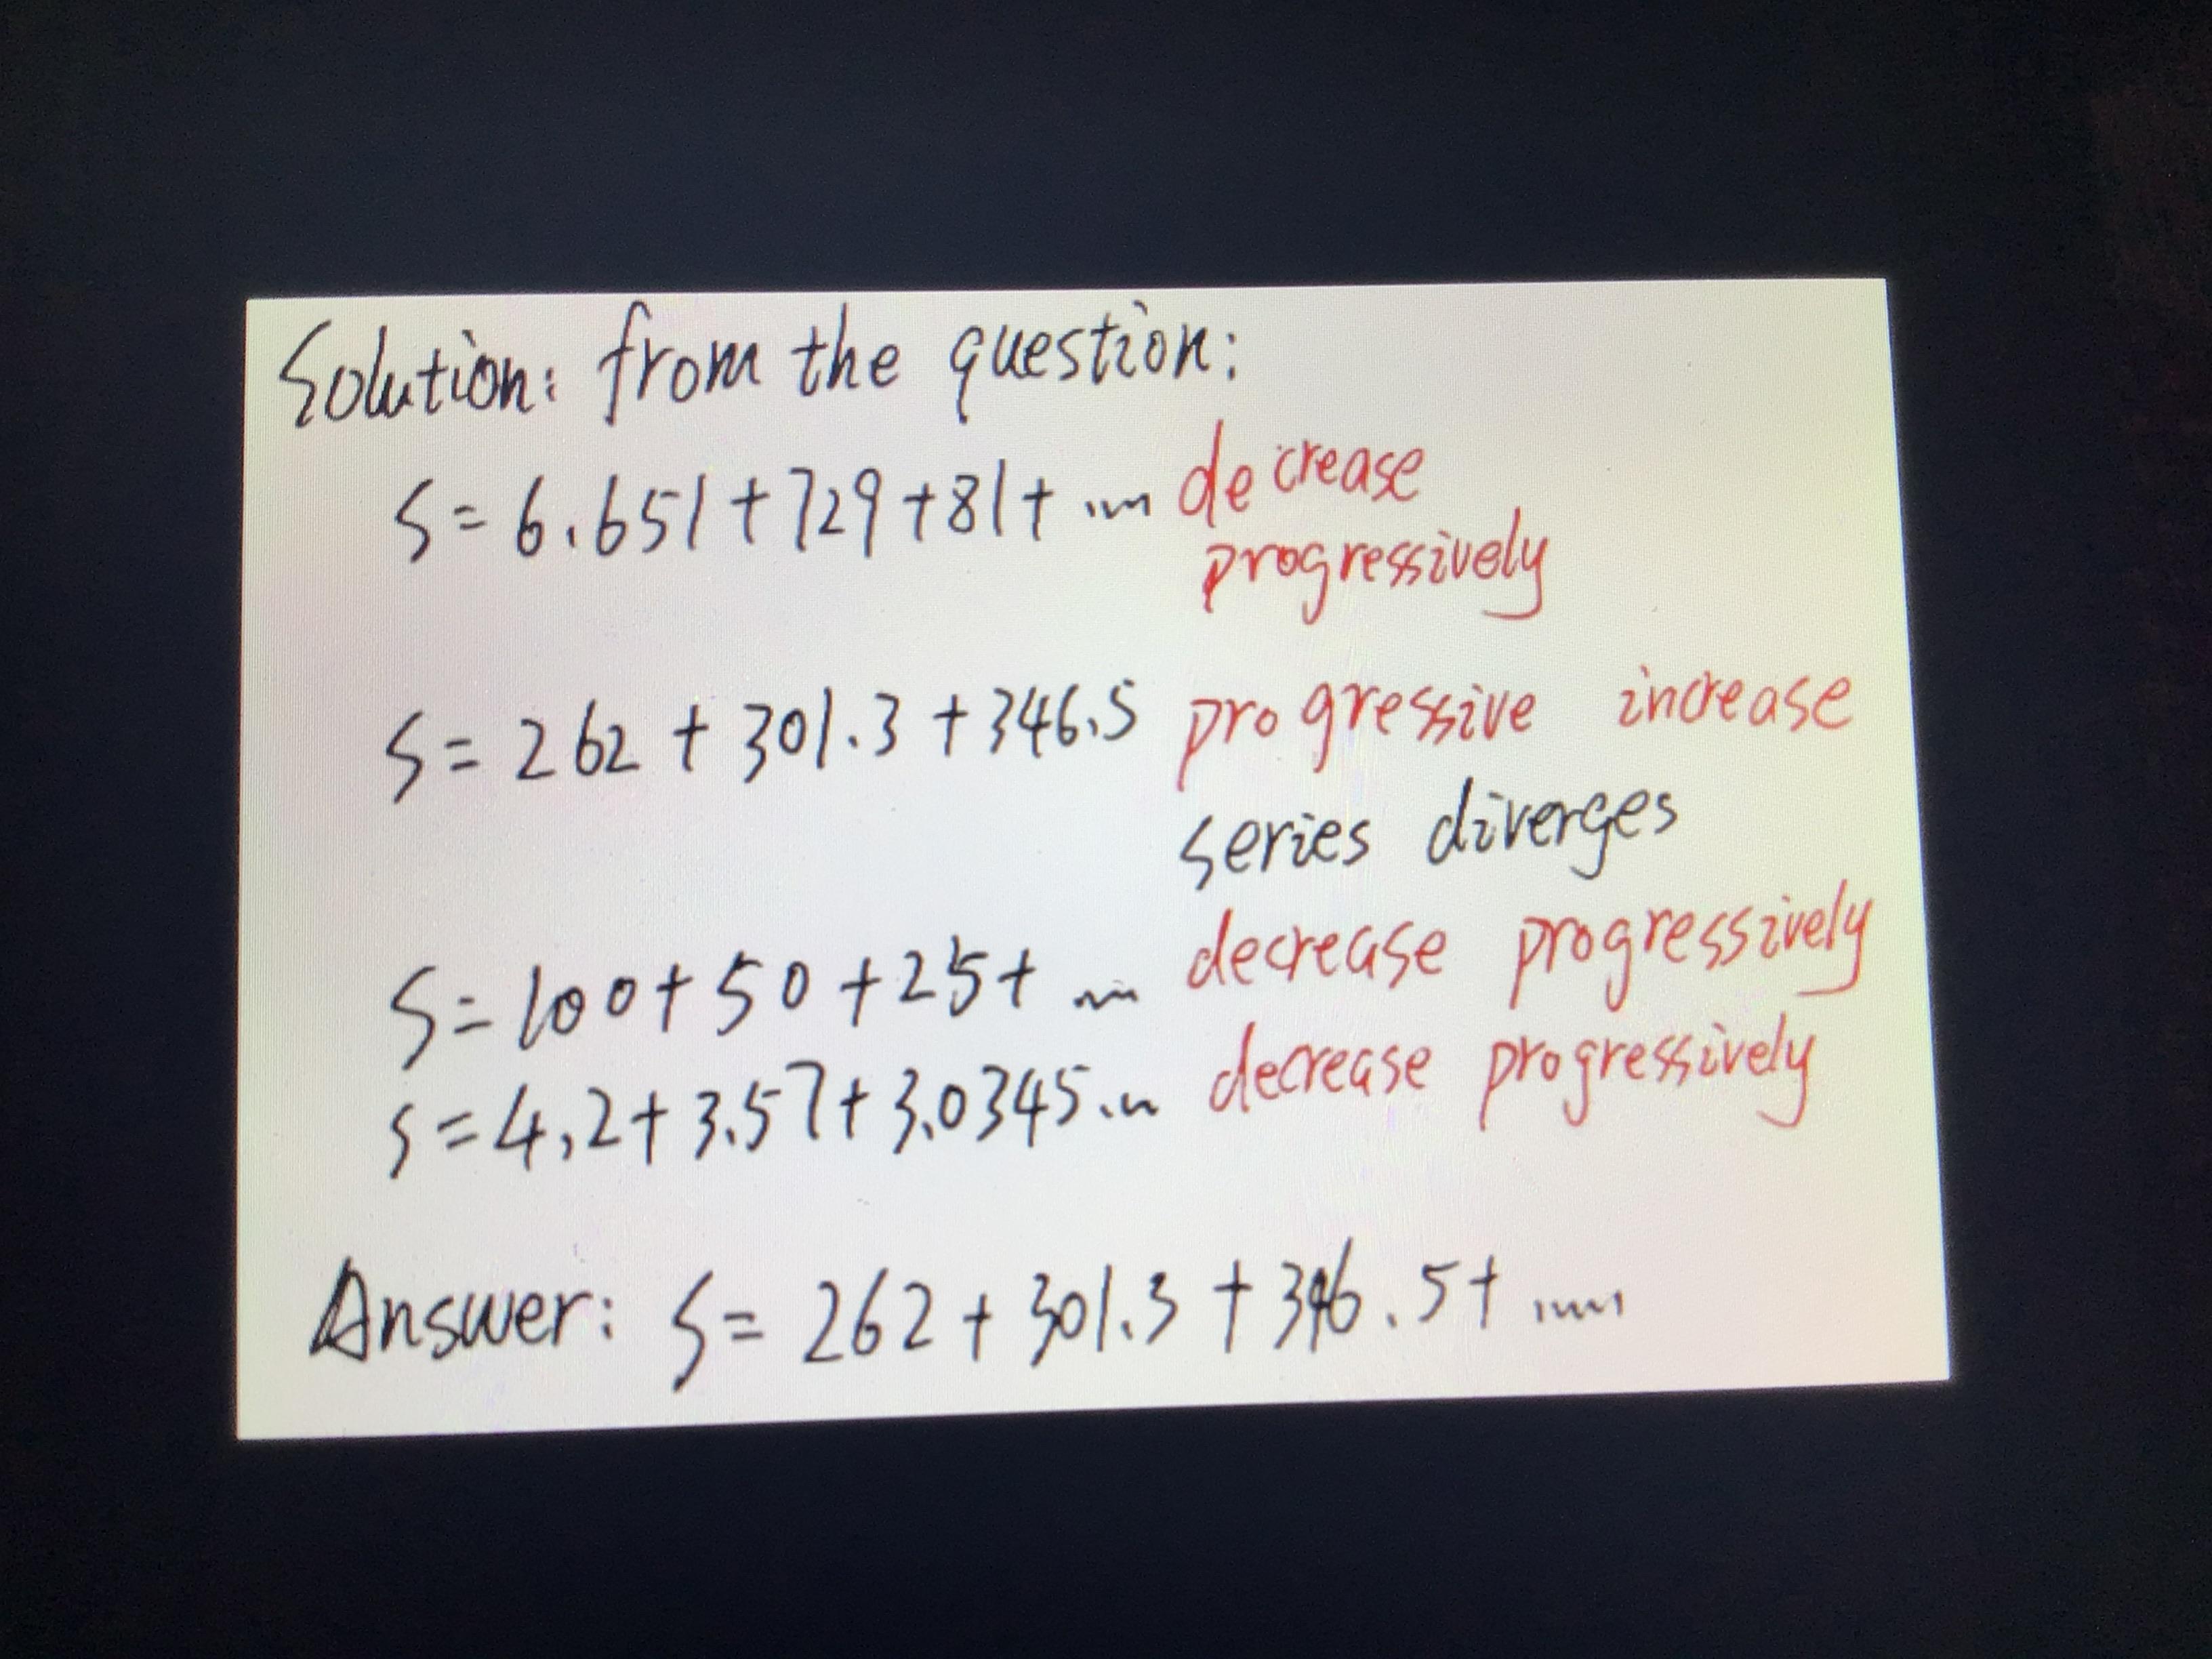 Solution: from the question:
S = 6.651 + 729 + 81 + ... decrease
progressively
S = 262 + 301.3 + 346.5 progressive increase
series diverges
S = 100 + 50 + 25 + ... decrease progressively
S = 4,2 + 3.57 + 3.0345... decrease progressively
Answer: S = 262 + 301.3 + 346.5 + ...